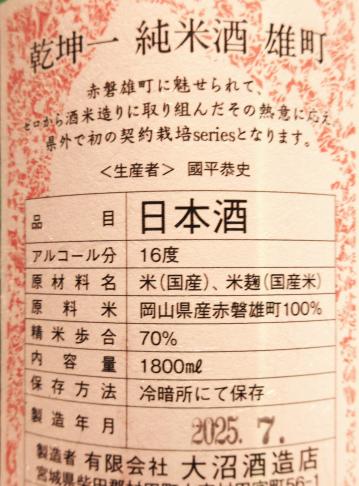 乾坤一 純米酒 雄町
赤磐雄町に魅せられて、
ゼロから酒米造りに取り組んだその熱意に応え
県外で初の契約栽培seriesとなります。
<生産者> 國平恭史
品目 日本酒
アルコール分 16度
原材料名 米(国産)、米麹(国産米)
原料米 岡山県産赤磐雄町100%
精米歩合 70%
内容量 1800㎖
保存方法 冷暗所にて保存
製造年月 2025.7.
製造者 有限会社 大沼酒造店
宮城県柴田郡村田町大字村田字町56-1